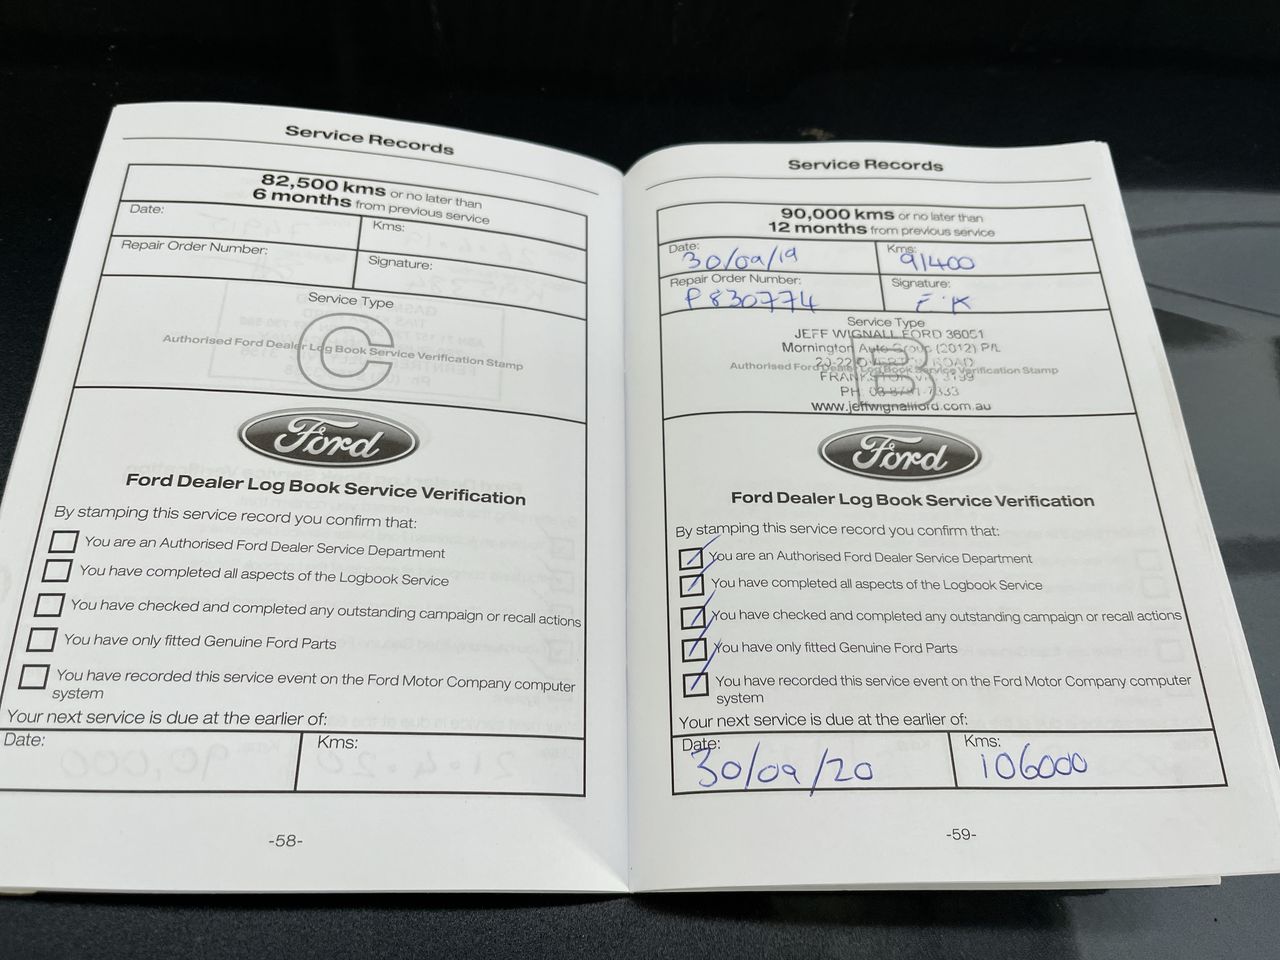 Service Records
82,500 kms or no later than
6 months from previous service
Date:
Kms:
Repair Order Number:
Signature:
Service Type
C
Authorised Ford Dealer Log Book Service Verification Stamp
Ford
Ford Dealer Log Book Service Verification
By stamping this service record you confirm that:
You are an Authorised Ford Dealer Service Department
You have completed all aspects of the Logbook Service
You have checked and completed any outstanding campaign or recall actions
You have only fitted Genuine Ford Parts
You have recorded this service event on the Ford Motor Company computer
system
Your next service is due at the earlier of:
Date:
Kms:
-58-
Service Records
90,000 kms or no later than
12 months from previous service
Date: 30/09/19
Kms: 91400
Repair Order Number: P830774
Signature: E.K
Service Type
B
JEFF WIGNALL FORD 36051
Mornington Auto Group (2012) P/L
ROAD
Authorised Ford Dealer Log Book Service Verification Stamp
PH
www.jeffwignallford.com.au
Ford
Ford Dealer Log Book Service Verification
By stamping this service record you confirm that:
You are an Authorised Ford Dealer Service Department
You have completed all aspects of the Logbook Service
You have checked and completed any outstanding campaign or recall actions
You have only fitted Genuine Ford Parts
You have recorded this service event on the Ford Motor Company computer
system
Your next service is due at the earlier of:
Date: 30/09/20
Kms: 106000
-59-